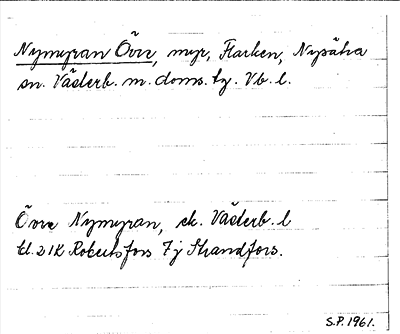 Nymyran Övre, myr, Flarken, Nysätra
sn. Västerb. m. doms. tg. Vb. l.
Övre Nymyran, ek. Västerb. l
bl. 21K Robertsfors 7j Strandfors.
S.P. 1961.